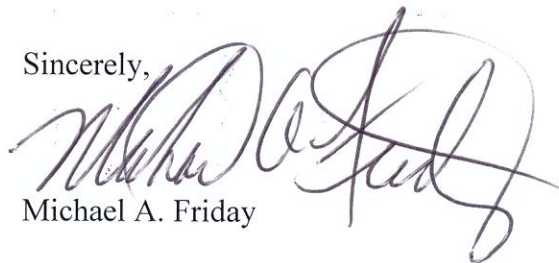 Sincerely,
Michael A. Friday
Michael A. Friday